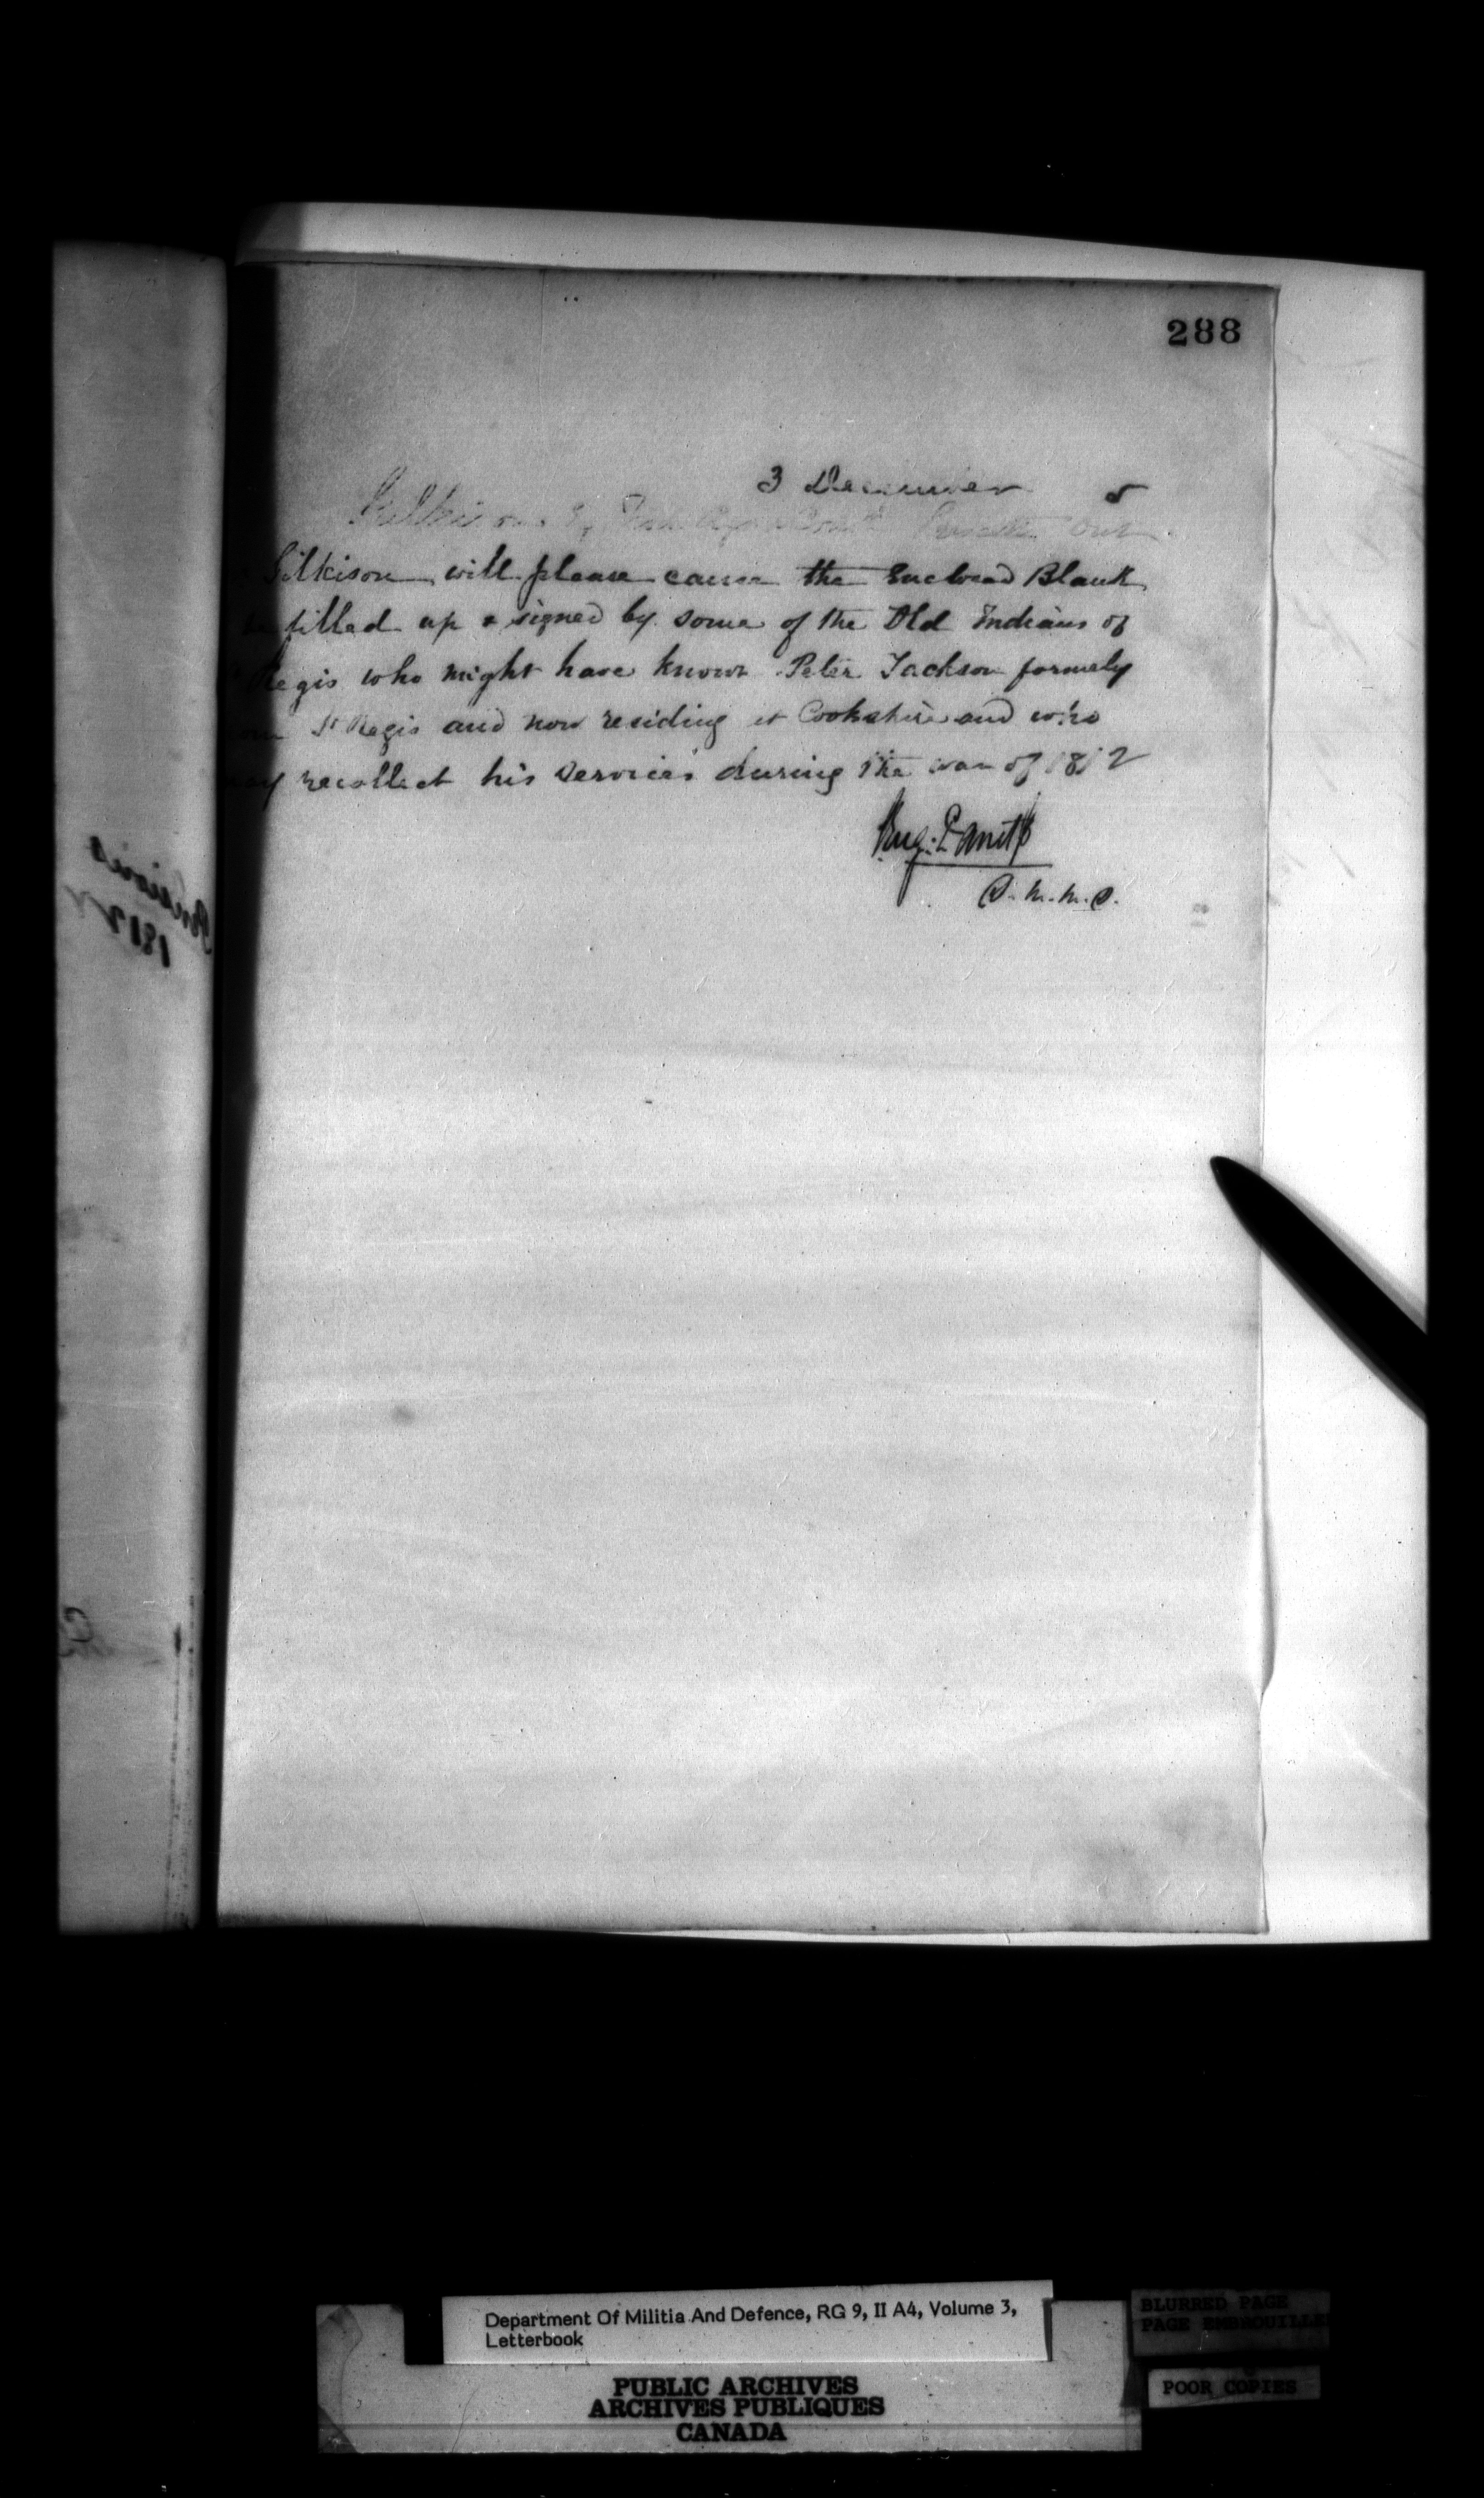 288
3 December 5
Gilkison
Gilkison will please cause the Enclosed Blank
filled up & signed by some of the Old Indians of
Regis who might have known Peter Jackson formely
St Regis and now residing at Cookshire and who
may recollect his services during the war of 1812
D. M. M. D.
Pensions
1812
Department Of Militia And Defence, RG 9, II A4, Volume 3,
Letterbook
PUBLIC ARCHIVES
ARCHIVES PUBLIQUES
CANADA
BLURRED PAGE
PAGE EMBROUILLE
POOR COPIES